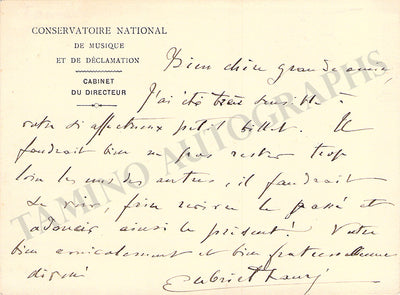 CONSERVATOIRE NATIONAL
DE MUSIQUE
ET DE DÉCLAMATION
CABINET
DU DIRECTEUR
Bien chère grande amie,
J'ai été très sensible à
votre si affectueux petit billet. Il
faudrait bien ne pas rester trop
loin les uns des autres, il faudrait
se voir, faire revivre le passé et
adoucir ainsi le présent! Votre
bien amicalement et bien
Gabriel Fauré
TAMINO AUTOGRAPHS